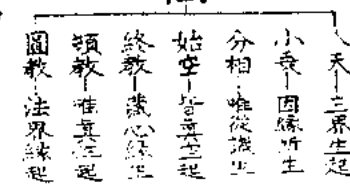 人天—三界生起
小乘—因緣所生
分相—唯從識生
始空—皆真空起
終教—藏心緣生
頓教—唯真性起
圓教—法界緣起